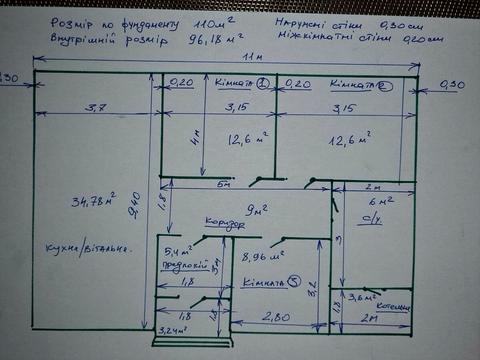 Розмір по фундаменту 110м² Наружні стіни 0,30см
Внутрішній розмір 96,18 м² Міжкімнатні стіни 0,20см
11м
0,30 0,20 Кімната 1 0,20 Кімната 2 0,30
3,7 3,15 3,15
4м 12,6 м² 12,6 м²
5м 2м
34,78м² 9,40 1,8 9м² 6 м²
Коридор с/у
Кухня/вітальня 5,4м² 8,96 м² 3
предпокій 3м Кімната 3 3,2
1,8 3,6м² Котельня
1,8 1,8 2,80 1,8 2м
3,24м²